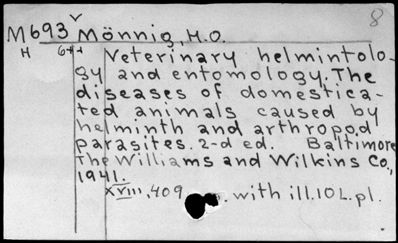 8
M693 Mönnig, H.O.
H 6++ Veterinary helmintolo-
gy and entomology. The
diseases of domestica-
ted animals caused by
helminth and arthropod
parasites. 2-d ed. Baltimore
The Williams and Wilkins Co.,
1941.
XVIII, 409 p. with ill. 10 L. pl.